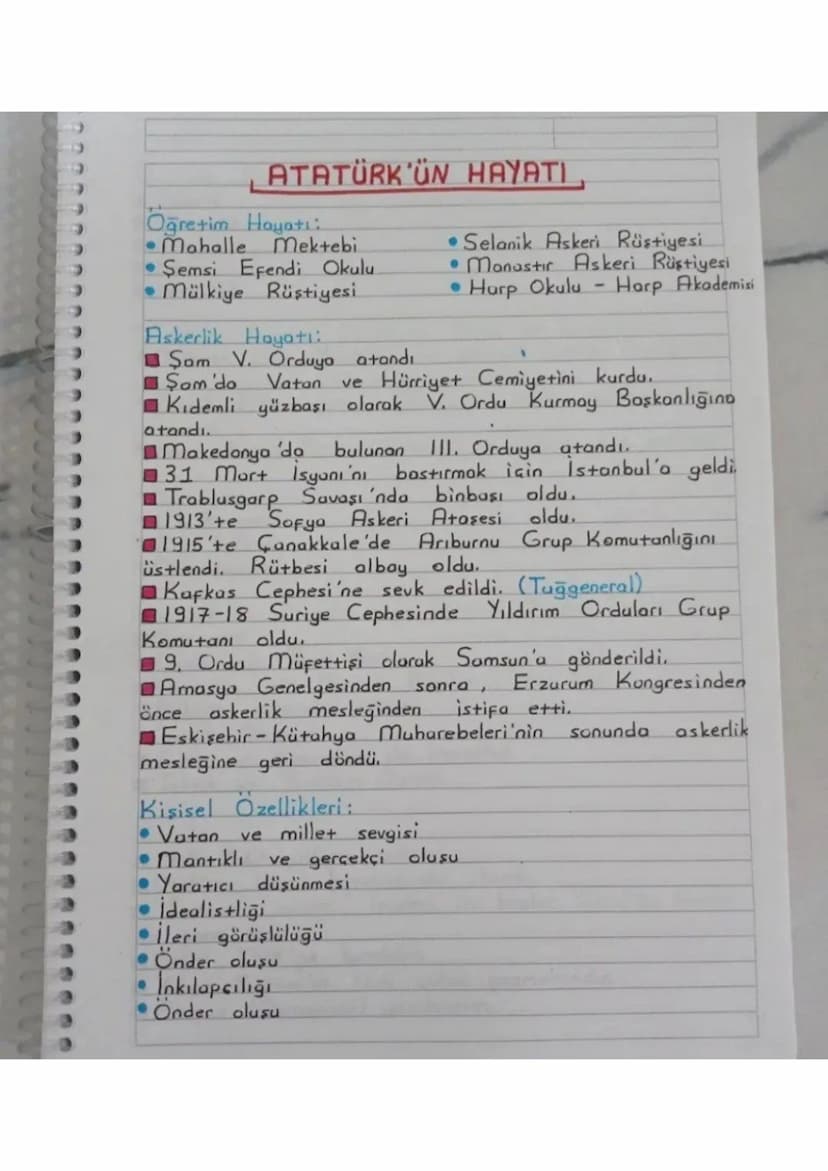 ATATÜRK'ÜN HAYATI
Öğretim Hayatı:
• Mahalle Mektebi
• Şemsi Efendi Okulu
• Mülkiye Rüştiyesi
• Selanik Askeri Rüştiyesi
• Manastır Askeri Rüştiyesi
• Harp Okulu - Harp Akademisi
Askerlik Hayatı:
■ Şam V. Orduya atandı
■ Şam'da Vatan ve Hürriyet Cemiyetini kurdu.
■ Kıdemli yüzbaşı olarak V. Ordu Kurmay Başkanlığına
atandı.
■ Makedonya'da bulunan III. Orduya atandı.
■ 31 Mart İsyanı'nı bastırmak için İstanbul'a geldi.
■ Trablusgarp Savaşı'nda binbaşı oldu.
■ 1913'te Sofya Askeri Ataşesi oldu.
■ 1915'te Çanakkale'de Arıburnu Grup Komutanlığını
üstlendi. Rütbesi albay oldu.
■ Kafkas Cephesi'ne sevk edildi. (Tuğgeneral)
■ 1917-18 Suriye Cephesinde Yıldırım Orduları Grup
Komutanı oldu.
■ 9. Ordu Müfettişi olarak Samsun'a gönderildi.
■ Amasya Genelgesinden sonra, Erzurum Kongresinden
önce askerlik mesleğinden istifa etti.
■ Eskişehir - Kütahya Muharebeleri'nin sonunda askerlik
mesleğine geri döndü.
Kişisel Özellikleri:
• Vatan ve millet sevgisi
• Mantıklı ve gerçekçi oluşu
• Yaratıcı düşünmesi
• İdealistliği
• İleri görüşlülüğü
• Önder oluşu
• İnkılapçılığı
• Önder oluşu